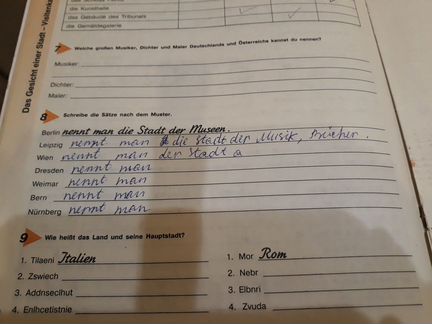 die Kunsthalle
das Gebäude des Tribunals
die Gemäldegalerie
Das Gesicht einer Stadt – Visitenka
7 Welche großen Musiker, Dichter und Maler Deutschlands und Österreichs kannst du nennen?
Musiker:
Dichter:
Maler:
8 Schreibe die Sätze nach dem Muster.
Berlin nennt man die Stadt der Museen.
Leipzig nennt man die Stadt der Musik, Bücher.
Wien nennt man der Stadt a
Dresden nennt man
Weimar nennt man
Bern nennt man
Nürnberg nennt man
9 Wie heißt das Land und seine Hauptstadt?
1. Tilaeni Italien 1. Mor Rom
2. Zswiech 2. Nebr
3. Addnseclhut 3. Elbnri
4. Enlhcetistnie 4. Zvuda